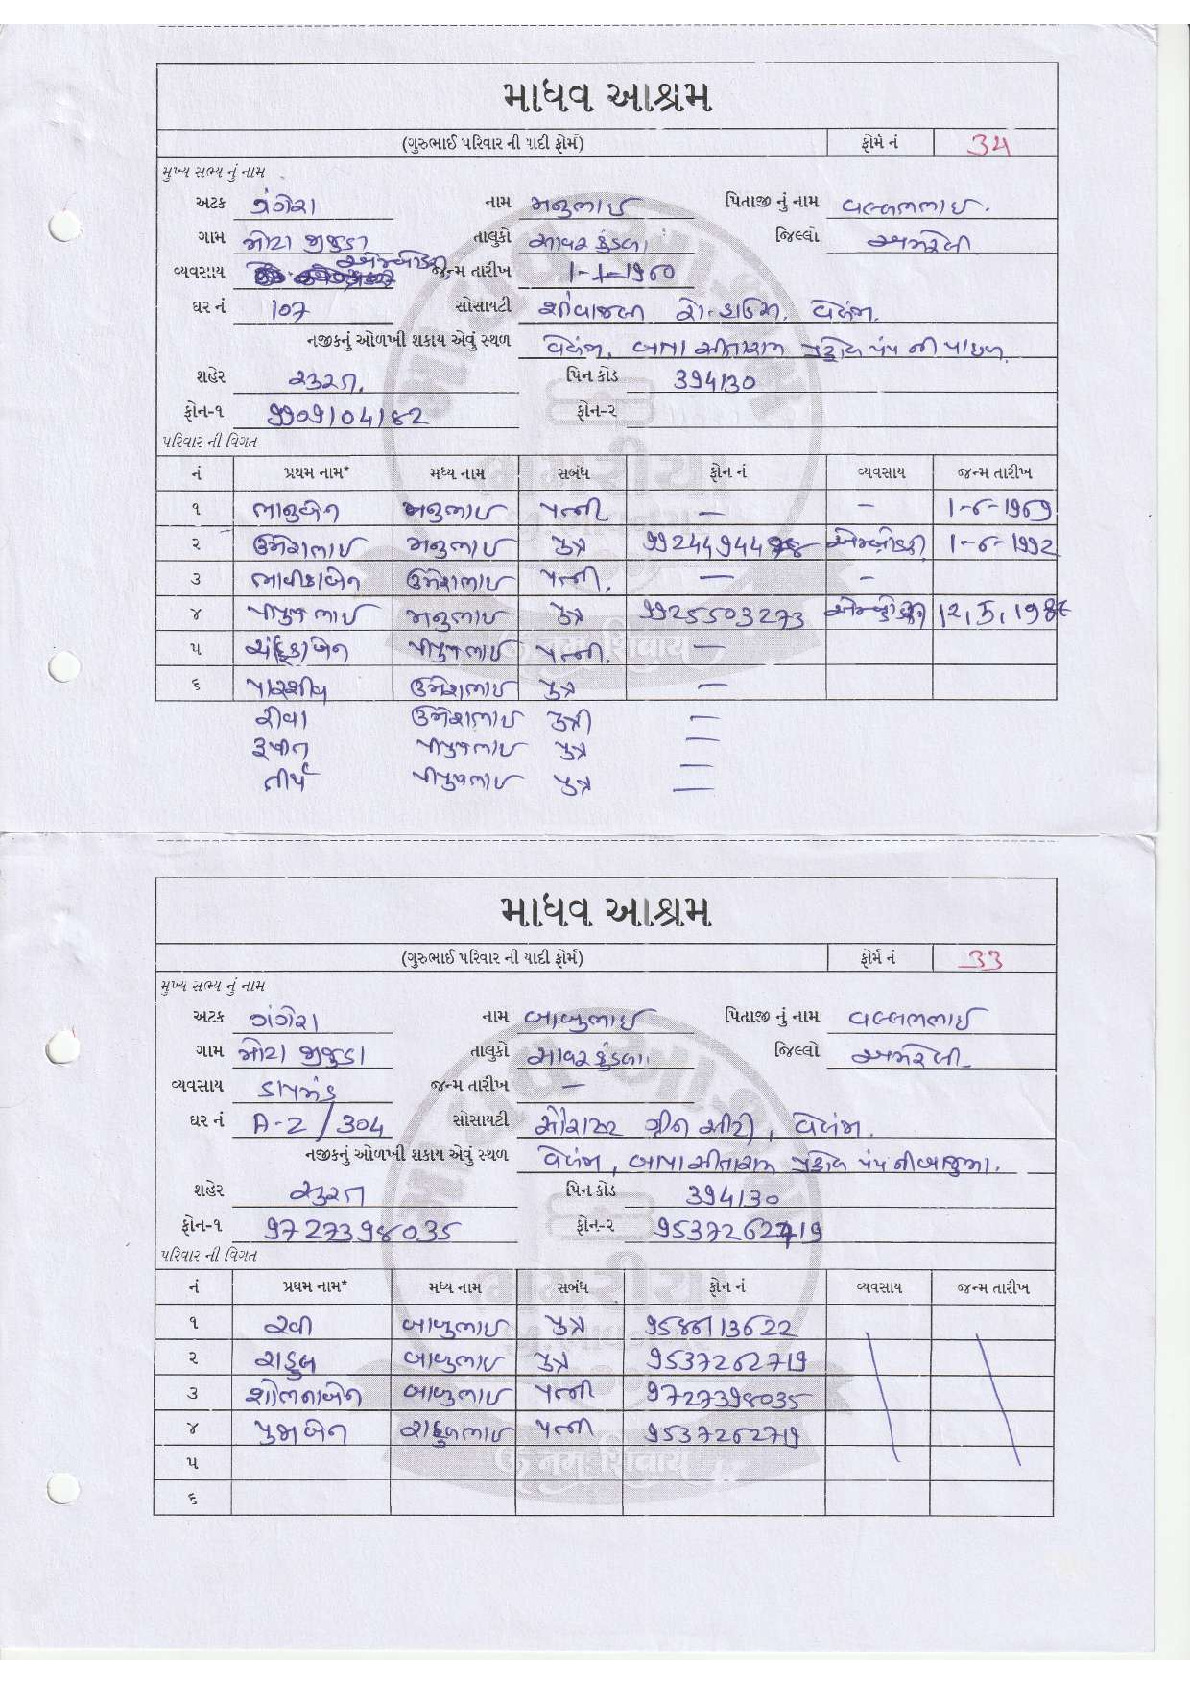 માધવ આશ્રમ
(ગુરુભાઈ પરિવાર ની યાદી ફોર્મ) ફોર્મ નં 34
મુખ્ય સભ્ય નું નામ
અટક ગંગેરા નામ મનુભાઇ પિતાજી નું નામ વલ્લભભાઇ.
ગામ મોટા જીંજુડા તાલુકો સાવર કુંડલા જિલ્લો અમરેલી
વ્યવસાય એમ્બ્રોડરી જન્મ તારીખ 1-1-1960
ઘર નં 107 સોસાયટી રો-હાઉસ, વેલંજા.
નજીકનું ઓળખી શકાય એવું સ્થળ વેલંજા, બાપા સીતારામ પેટ્રોલ પંપ ની પાછળ.
શહેર સુરત. પિન કોડ 394130
ફોન-૧ 9909104182 ફોન-૨
પરિવાર ની વિગત
નં પ્રથમ નામ* મધ્ય નામ સબંધ ફોન નં વ્યવસાય જન્મ તારીખ
૧ ભાનુબેન મનુભાઇ પત્ની — — 1-6-1969
૨ ઉમેશભાઇ મનુભાઇ પુત્ર એમ્બ્રોડરી 1-6-1992
૩ ભાવીકાબેન ઉમેશભાઇ પત્ની. — —
૪ પીયુષભાઇ મનુભાઇ પુત્ર 9925503273 એમ્બ્રોડરી
૫ ચંદ્રીકાબેન પીયુષભાઇ પત્ની. —
૬ પારશીવ ઉમેશભાઇ પુત્ર —
રીવા ઉમેશભાઇ પુત્રી —
પીયુષભાઇ પુત્ર —
તીર્થ પીયુષભાઇ પુત્ર —
માધવ આશ્રમ
(ગુરુભાઈ પરિવાર ની યાદી ફોર્મ) ફોર્મ નં 33
મુખ્ય સભ્ય નું નામ
અટક ગંગેરા નામ બાબુભાઇ પિતાજી નું નામ વલ્લભભાઇ
ગામ મોટા જીંજુડા તાલુકો સાવર કુંડલા. જિલ્લો અમરેલી.
વ્યવસાય ડાયમંડ જન્મ તારીખ —
ઘર નં A-2/304 સોસાયટી સૌરાષ્ટ્ર ગ્રીન સીટી, વેલંજા.
નજીકનું ઓળખી શકાય એવું સ્થળ વેલંજા, બાપા સીતારામ પેટ્રોલ પંપ ની બાજુમા.
શહેર સુરત પિન કોડ 394130
ફોન-૧ 9727398035 ફોન-૨ 9537262719
પરિવાર ની વિગત
નં પ્રથમ નામ* મધ્ય નામ સબંધ ફોન નં વ્યવસાય જન્મ તારીખ
૧ રવી બાબુભાઇ પુત્ર 9586113622
૨ રાહુલ બાબુભાઇ પુત્ર 9537262719
૩ શોભનાબેન બાબુભાઇ પત્ની 9727398035
૪ પુજાબેન રાહુલભાઇ પત્ની 9537262719
૫
૬